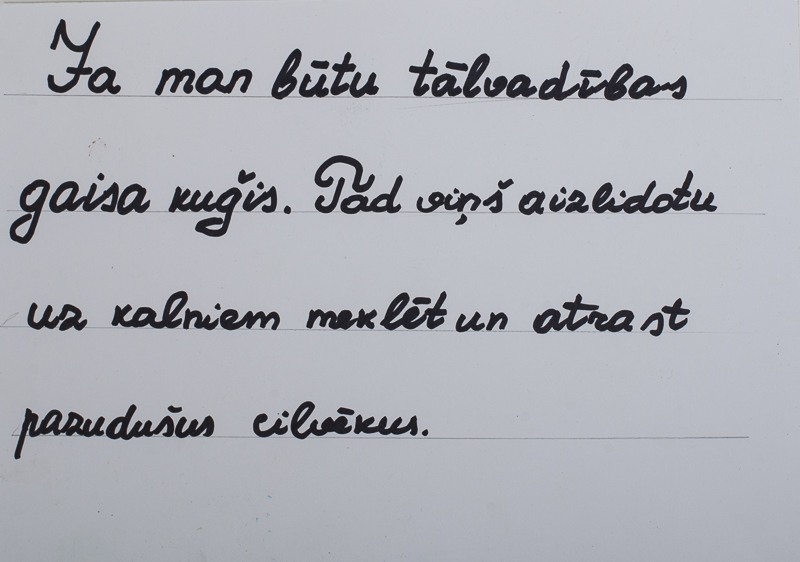 Ja man būtu tālvadības
gaisa kuģis. Tad viņš aizlidotu
uz kalniem meklēt un atrast
pazudušus cilvēkus.